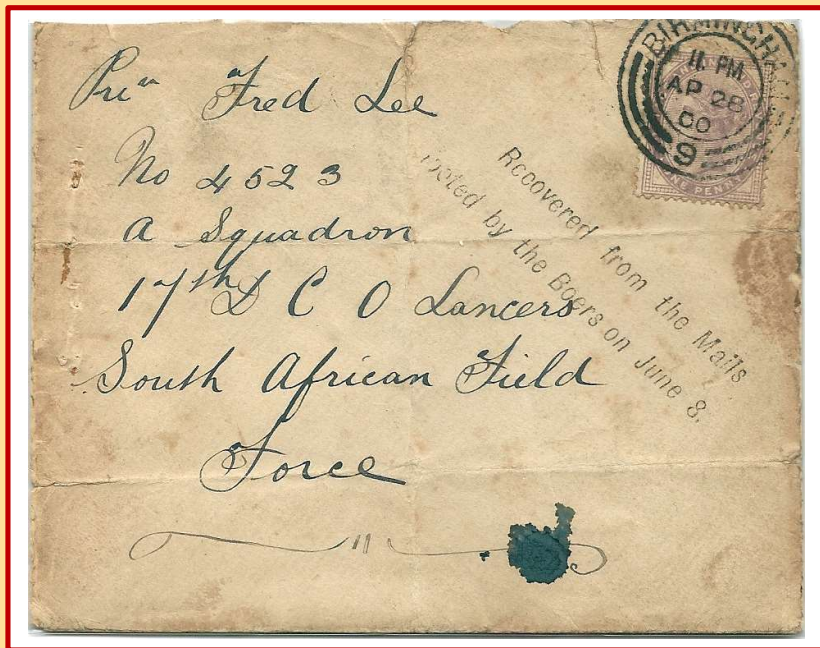 BIRMINGHAM
11 PM
AP 28
00
9
ONE PENNY
Fred Lee
No 4523
A Squadron
17th D C O Lancers
South African Field
Force
Recovered from the Mails
looted by the Boers on June 8.